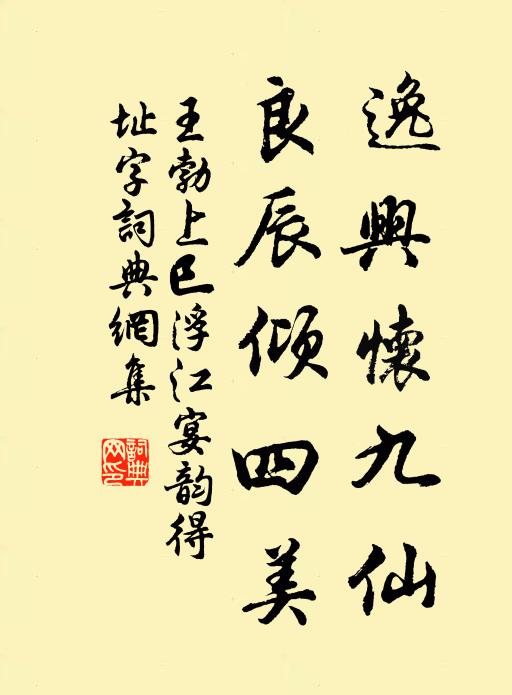 逸興懷九仙
良辰傾四美
王勃上巳浮江宴韵得
址字詞典網集
詞典网印